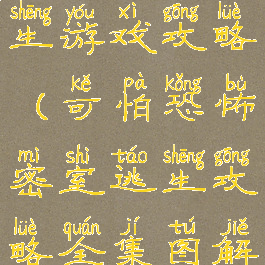 shēng yóu xì gōng lüè
生游戏攻略
kě pà kǒng bù
（可怕恐怖
mì shì táo shēng gōng
密室逃生攻
lüè quán jí tú jiě
略全集图解